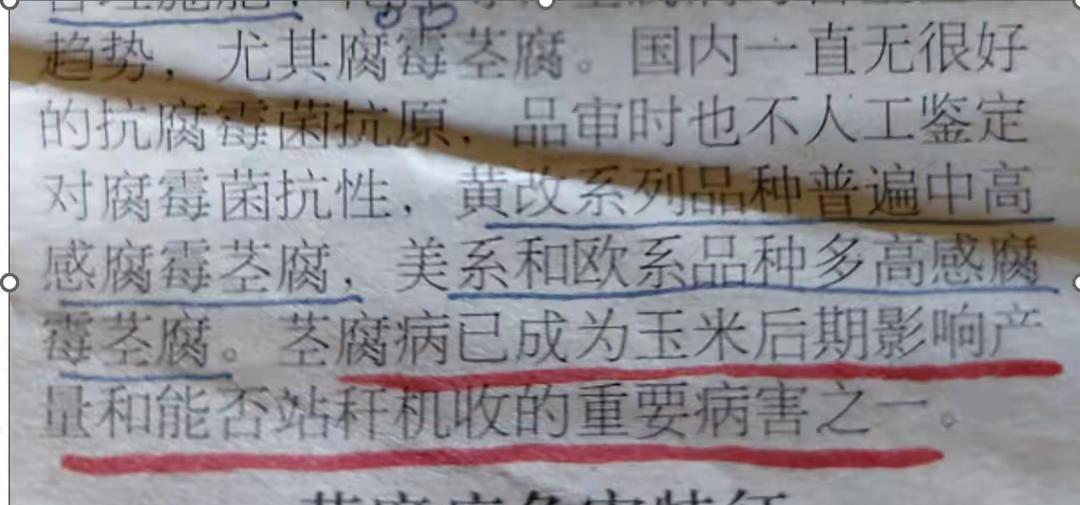 趋势，尤其腐霉茎腐。国内一直无很好
的抗腐霉菌抗原，品审时也不人工鉴定
对腐霉菌抗性，黄改系列品种普遍中高
感腐霉茎腐，美系和欧系品种多高感腐
霉茎腐。茎腐病已成为玉米后期影响产
量和能否站秆机收的重要病害之一。